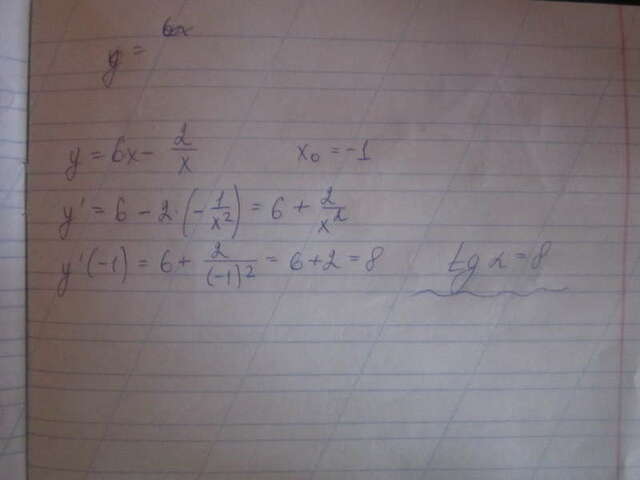 y =
y = 6x - 2/x x₀ = -1
y' = 6 - 2·(-1/x²) = 6 + 2/x²
y'(-1) = 6 + 2/(-1)² = 6 + 2 = 8 tg α = 8